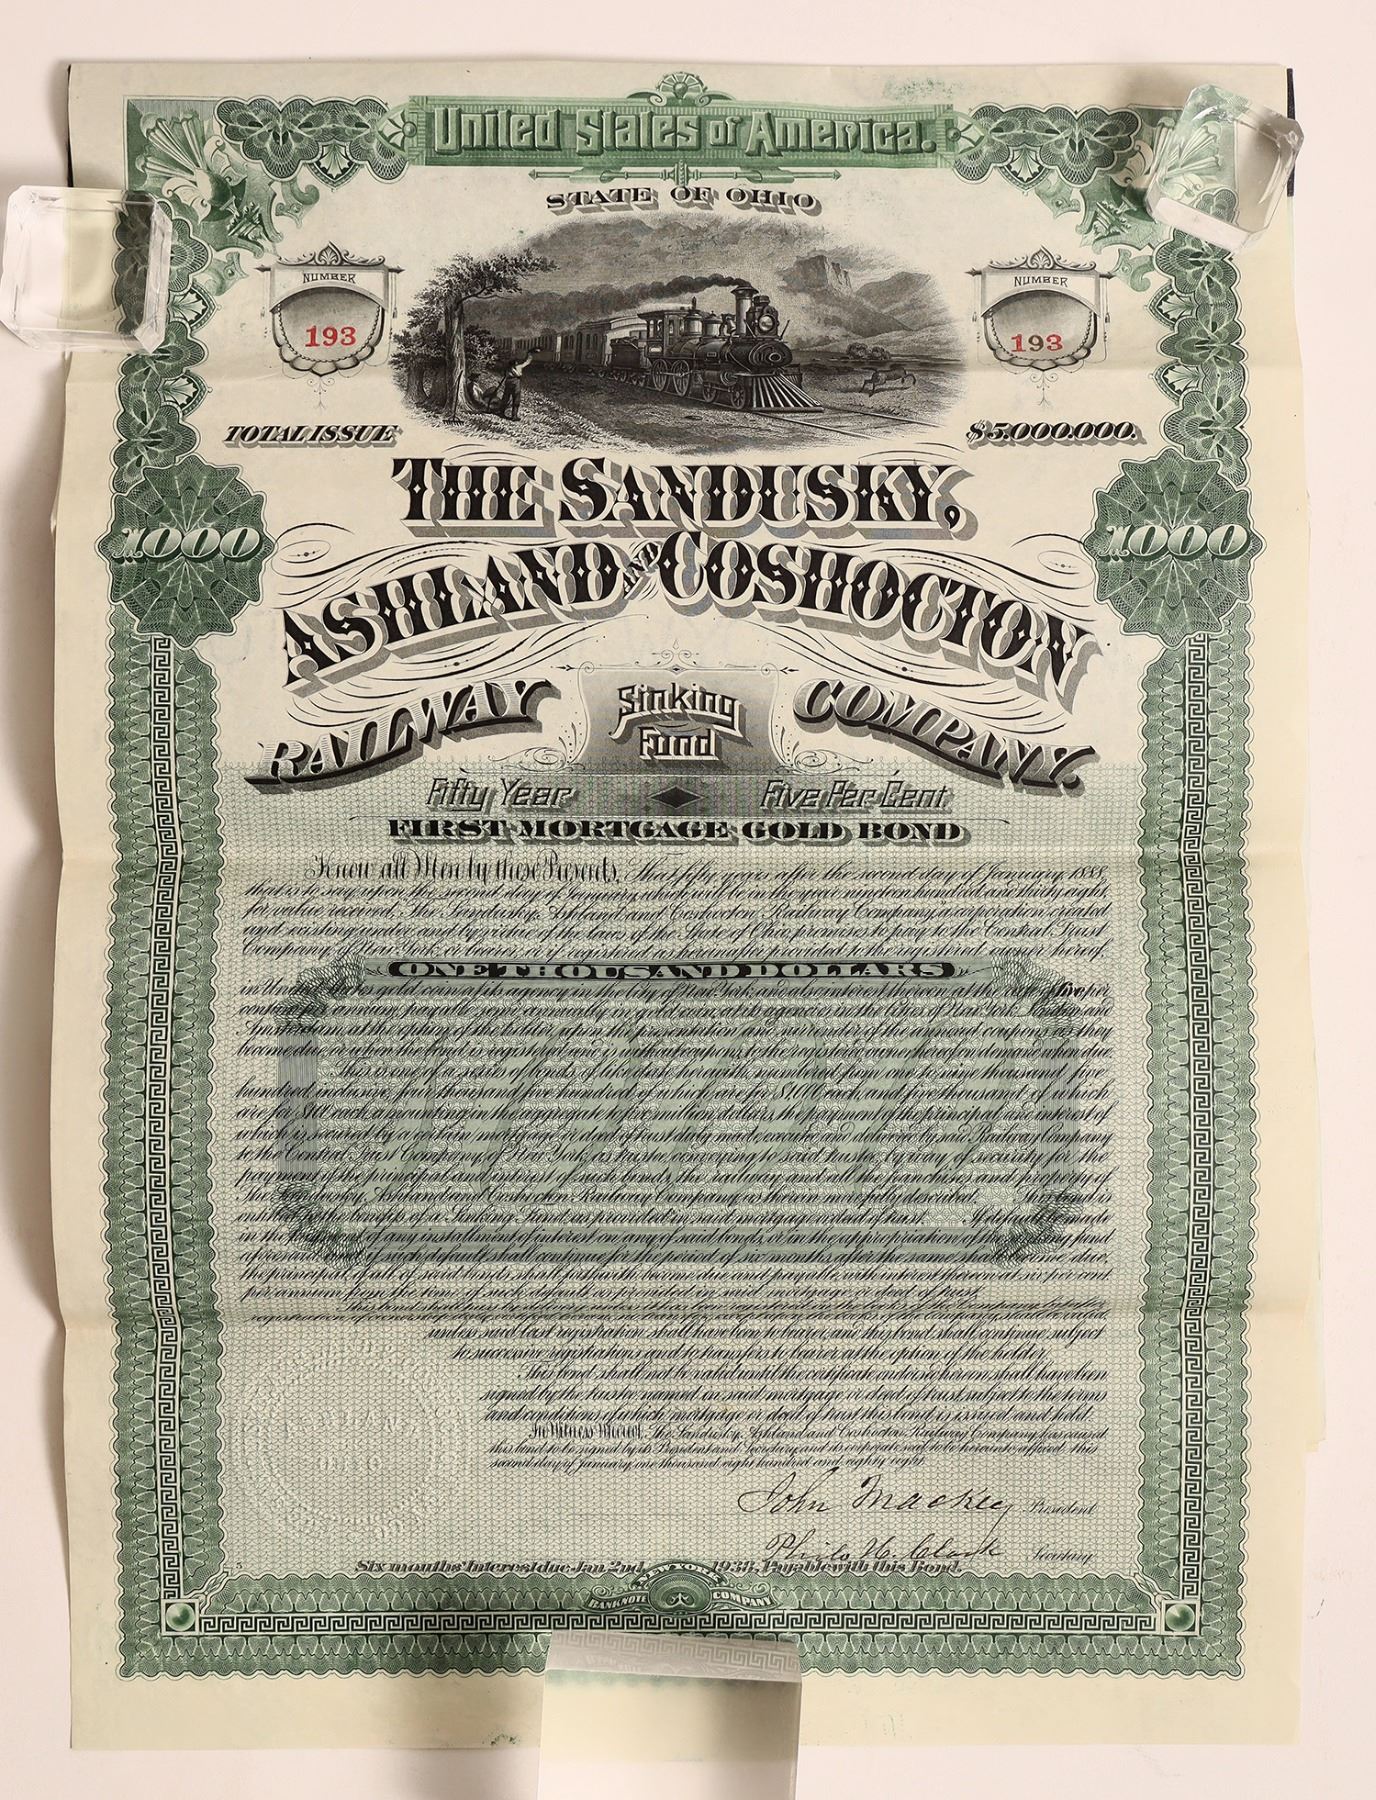 United States of America.
STATE OF OHIO
NUMBER
193
NUMBER
193
TOTAL ISSUE
$5,000,000.
THE SANDUSKY,
1000
1000
ASHLAND AND COSHOCTON
RAILWAY
Sinking
Fund
COMPANY.
Fifty Year
Five Per Cent
FIRST MORTGAGE GOLD BOND
Know all Men by these Presents, That fifty years after the second day of January, 1888,
that is to say, upon the second day of January, which will be in the year nineteen hundred and thirty eight,
for value received, The Sandusky, Ashland and Coshocton Railway Company, a corporation created
and existing under and by virtue of the laws of the State of Ohio, promises to pay to the Central Trust
Company of New York, or bearer, or if registered as hereinafter provided to the registered owner hereof,
ONE THOUSAND DOLLARS
in United States gold coin at its agency in the City of New York, and also interest thereon, at the rate of five per
cent per annum, payable semi annually in gold coin, at its agencies in the Cities of New York, London and
Amsterdam, at the option of the holder, upon the presentation and surrender of the annexed coupons as they
become due, or when the bond is registered and is without coupons, to the registered owner thereof on demand when due.
This is one of a series of bonds, of like date herewith, numbered from one to nine thousand five
hundred, inclusive, four thousand five hundred of which are for $1000 each, and five thousand of which
are for $100 each, amounting in the aggregate to five million dollars, the payment of the principal and interest of
which is secured by a certain mortgage or deed of trust duly made, executed and delivered by said Railway Company
to the Central Trust Company, of New York, as trustee, conveying to said trustee, by way of security for the
payment of the principal and interest of such bonds, the railway and all the franchises and property of
The Sandusky, Ashland and Coshocton Railway Company, as therein more fully described. This bond is
entitled to the benefits of a Sinking Fund as provided in said mortgage or deed of trust. If default be made
in the payment of any installment of interest on any of said bonds, or in the appropriation of the sinking fund
aforesaid, and if such default shall continue for the period of six months after the same shall become due,
the principal of all of said bonds shall forthwith become due and payable, with interest thereon at six per cent
per annum from the time of such default as provided in said mortgage or deed of trust.
This bond shall pass by delivery, unless it has been registered on the books of the Company, but after
registration of ownership, of the Company, shall be valid,
unless said last registration shall have been to bearer, and this bond shall continue subject
to successive registrations and to transfers to bearer at the option of the holder.
This bond shall not be valid until the certificate endorsed hereon shall have been
signed by the trustee named in said mortgage or deed of trust, subject to the terms
and conditions of which mortgage or deed of trust this bond is issued and held.
In Witness Whereof, The Sandusky, Ashland and Coshocton Railway Company has caused
this bond to be signed by its President and Secretary, and its corporate seal to be hereunto affixed this
second day of January, one thousand eight hundred and eighty eight.
John Mackey President
Philo H. Clark Secretary
Six months' Interest due Jan 2nd, 1938, Payable with this Bond.
NEW YORK
BANKNOTE COMPANY